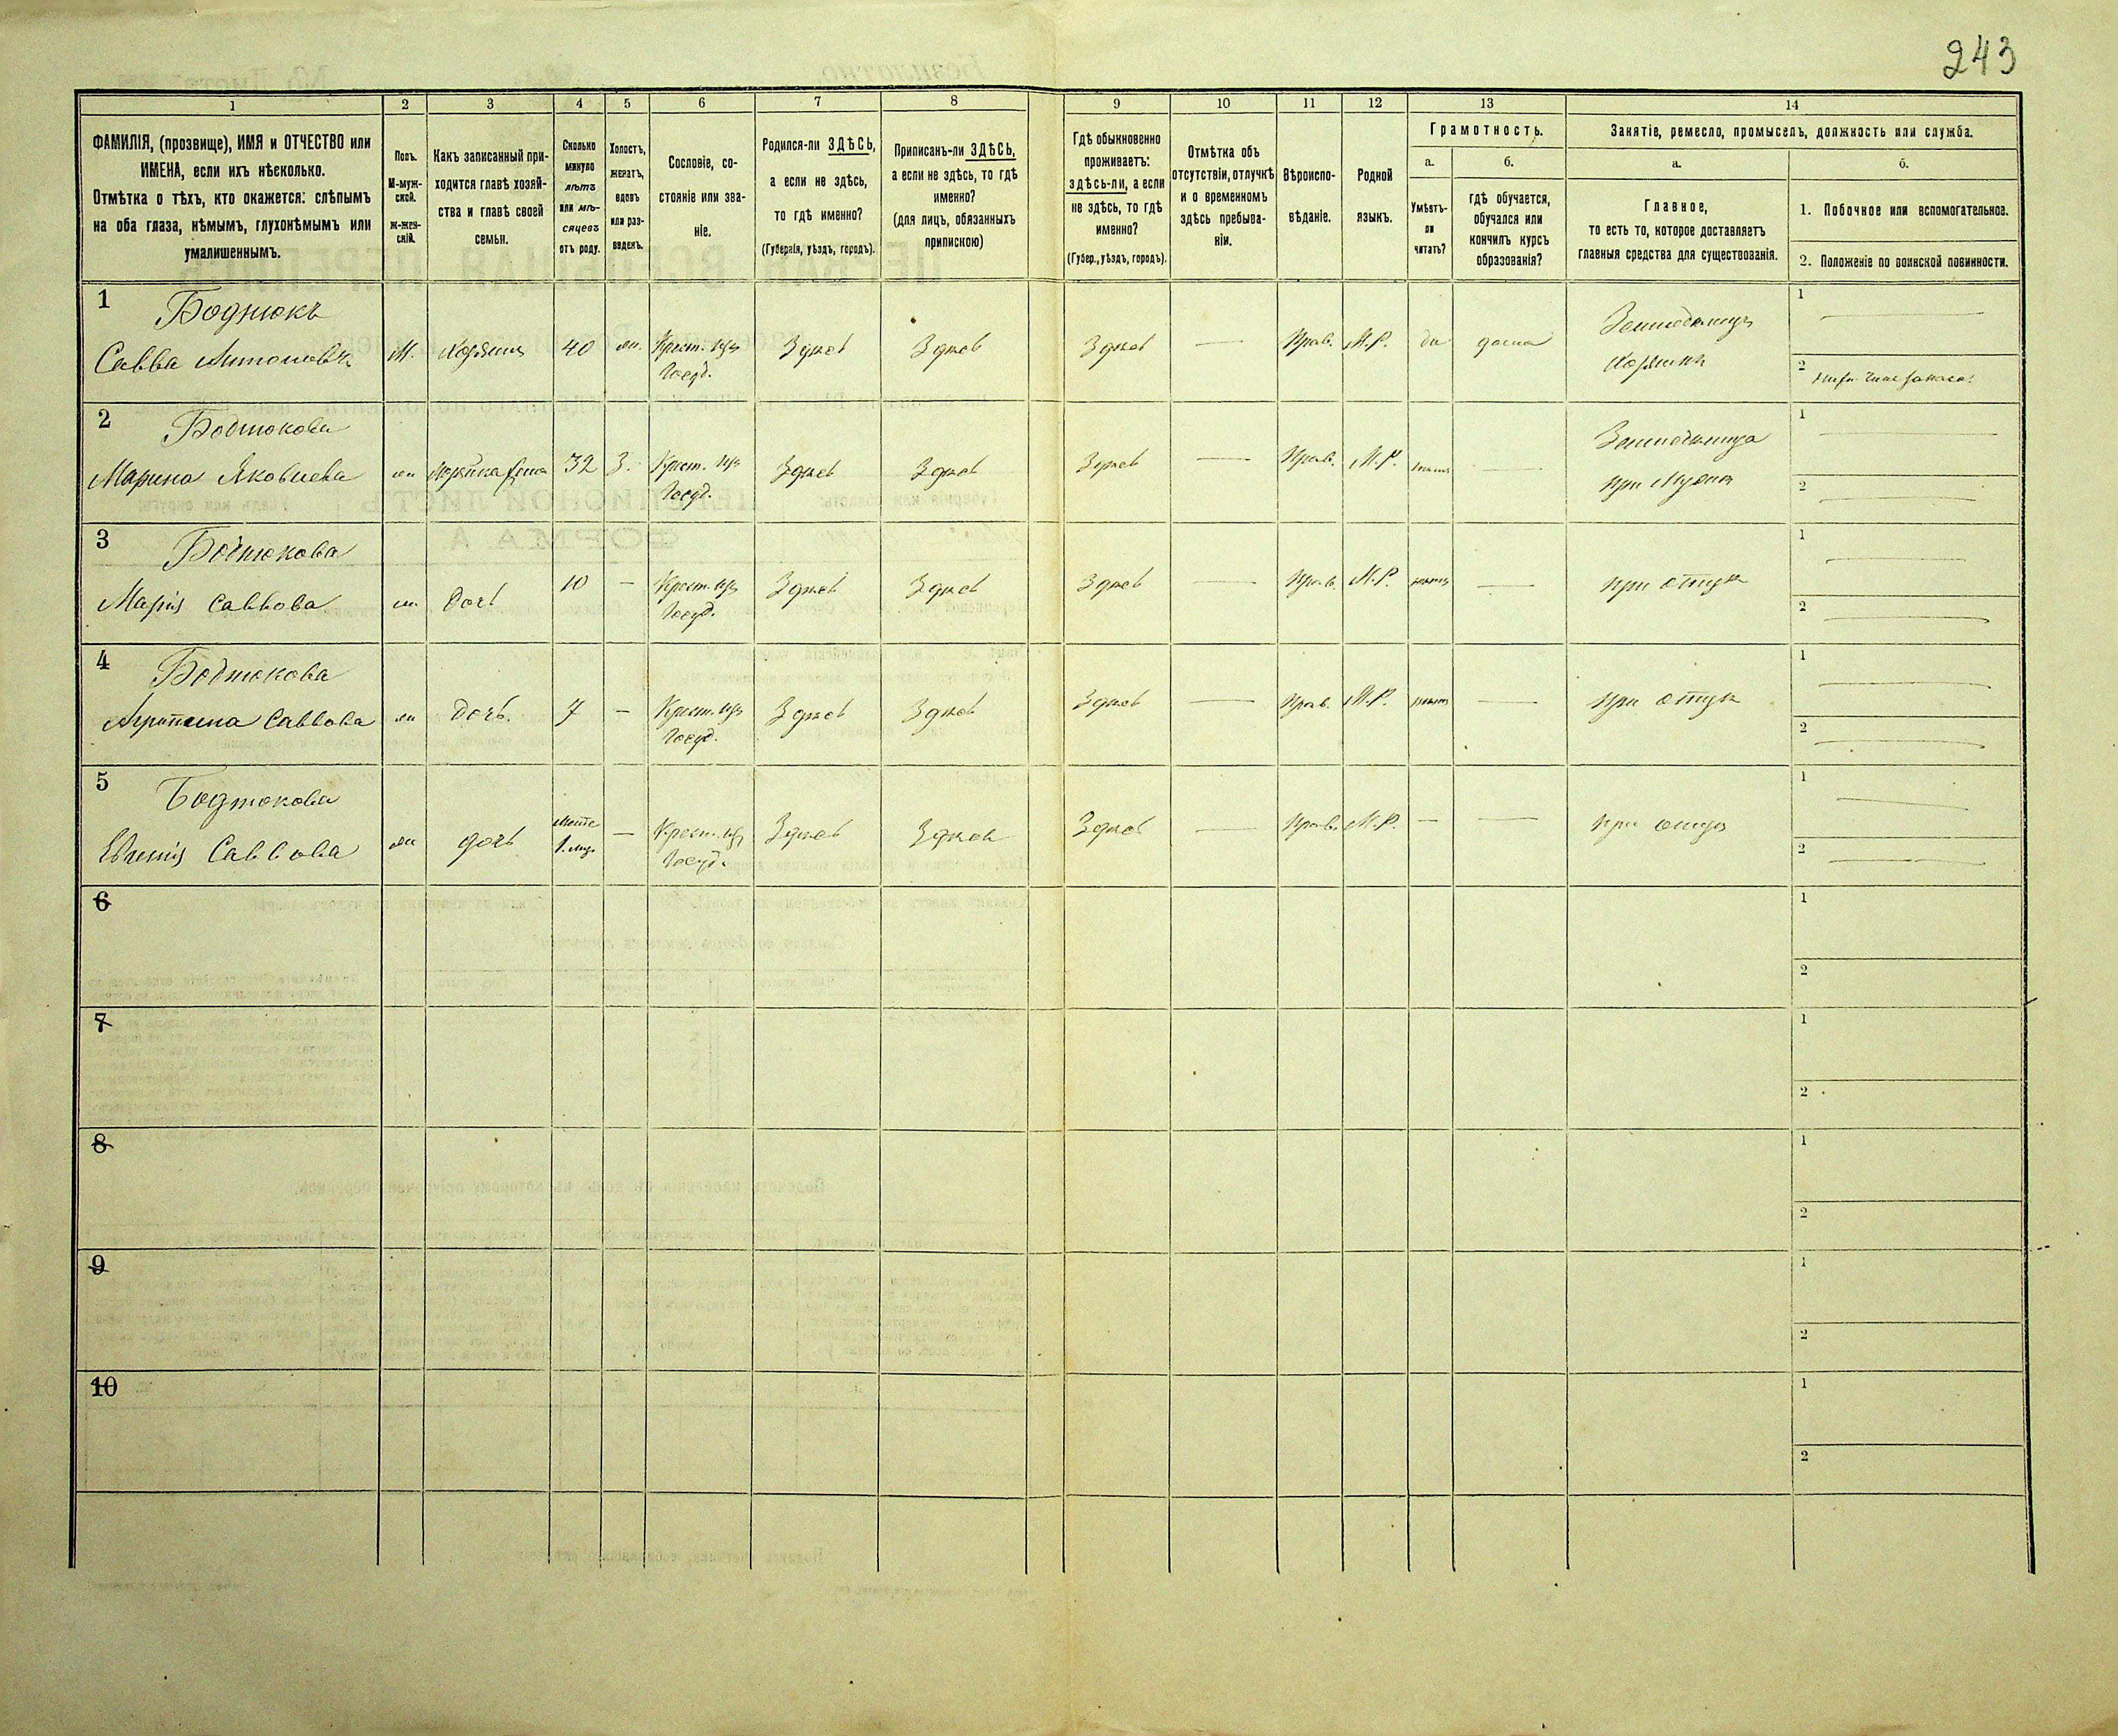 243
1 2 3 4 5 6 7 8 9 10 11 12 13 14
ФАМИЛІЯ, (прозвище), ИМЯ и ОТЧЕСТВО или
ИМЕНА, если ихъ нѣсколько.
Отмѣтка о тѣхъ, кто окажется: слѣпымъ
на оба глаза, нѣмымъ, глухонѣмымъ или
умалишеннымъ.
Полъ.
М-муж-
ской.
Ж-жен-
скій.
Какъ записанный при-
ходится главѣ хозяй-
ства и главѣ своей
семьи.
Сколько
минуло
лѣтъ
или мѣ-
сяцевъ
отъ роду.
Холостъ,
женатъ,
вдовъ
или раз-
веденъ.
Сословіе, со-
стояніе или зва-
ніе.
Родился-ли ЗДѢСЬ,
а если не здѣсь,
то гдѣ именно?
(Губернія, уѣздъ, городъ).
Приписанъ-ли ЗДѢСЬ,
а если не здѣсь, то гдѣ
именно?
(для лицъ, обязанныхъ
припискою)
Гдѣ обыкновенно
проживаетъ:
здѣсь-ли, а если
не здѣсь, то гдѣ
именно?
(Губер., уѣздъ, городъ).
Отмѣтка объ
отсутствіи, отлучкѣ
и о временномъ
здѣсь пребыва-
ніи.
Вѣроиспо-
вѣданіе.
Родной
языкъ.
Грамотность.
а.
Умѣетъ-
ли
читать?
б.
гдѣ обучается,
обучался или
кончилъ курсъ
образованія?
Занятіе, ремесло, промыселъ, должность или служба.
а.
Главное,
то есть то, которое доставляетъ
главныя средства для существованія.
б.
1. Побочное или вспомогательное.
2. Положеніе по воинской повинности.
1 Боднюкъ
Савва Антоновъ М. Хозяинъ 40 жн. Крест. изъ Госуд. Здѣсь Здѣсь Здѣсь — Прав. М.Р. да дома Земледѣлецъ Хозяинъ
1 —
2
2 Боднюкова
Марина Яковлева жн Хозяйка жена 32 З. Крест. изъ Госуд. Здѣсь Здѣсь Здѣсь — Прав. М.Р. нѣтъ — Земледѣлица при мужѣ
1 —
2 —
3 Боднюкова
Марія Саввова жн Дочь 10 — Крест. изъ Госуд. Здѣсь Здѣсь Здѣсь — Прав. М.Р. нѣтъ — при отцѣ
1 —
2 —
4 Боднюкова
Агрипина Саввова жн Дочь. 7 — Крест. изъ Госуд. Здѣсь Здѣсь Здѣсь — Прав. М.Р. нѣтъ — при отцѣ
1 —
2 —
5 Боднюкова
Евгенія Саввова жн дочь — Крест. изъ Госуд. Здѣсь Здѣсь Здѣсь — Прав. М.Р. — — при отцѣ
1 —
2 —
6
1
2
7
1
2
8
1
2
9
1
2
10
1
2